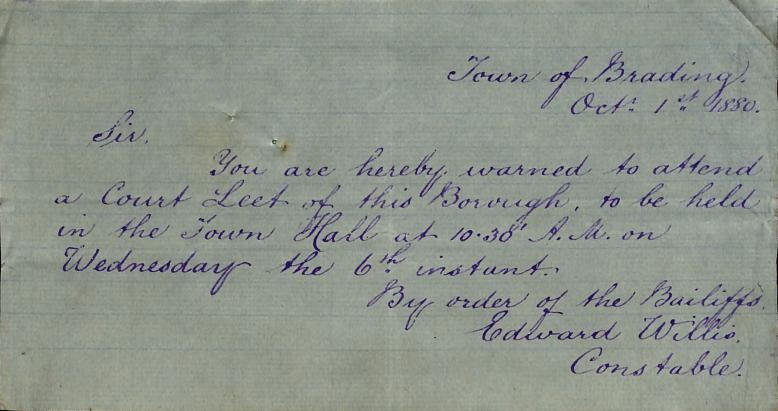 Town of Brading.
Oct: 1st 1880.
Sir,
You are hereby warned to attend
a Court Leet of this Borough, to be held
in the Town Hall at 10.30' A.M. on
Wednesday the 6th instant.
By order of the Bailiffs.
Edward Willis.
Constable.